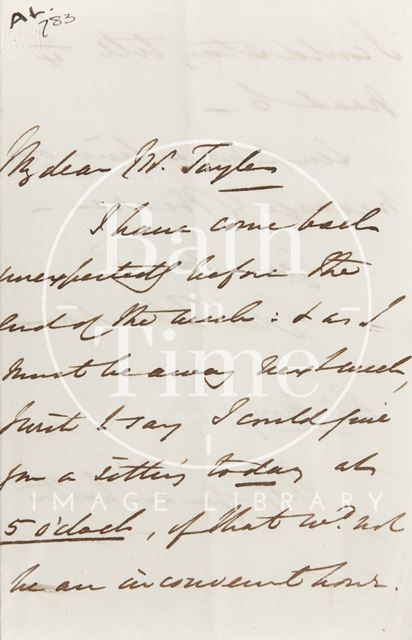 AL.
783
My dear Mr. Tayler
I have come back
unexpectedly before the
end of the week: & as I
must be away next week,
just to say I could give
you a sitting today at
5 o'clock, if that wd. not
be an inconvenient hour.
Bath
in
Time
IMAGE LIBRARY